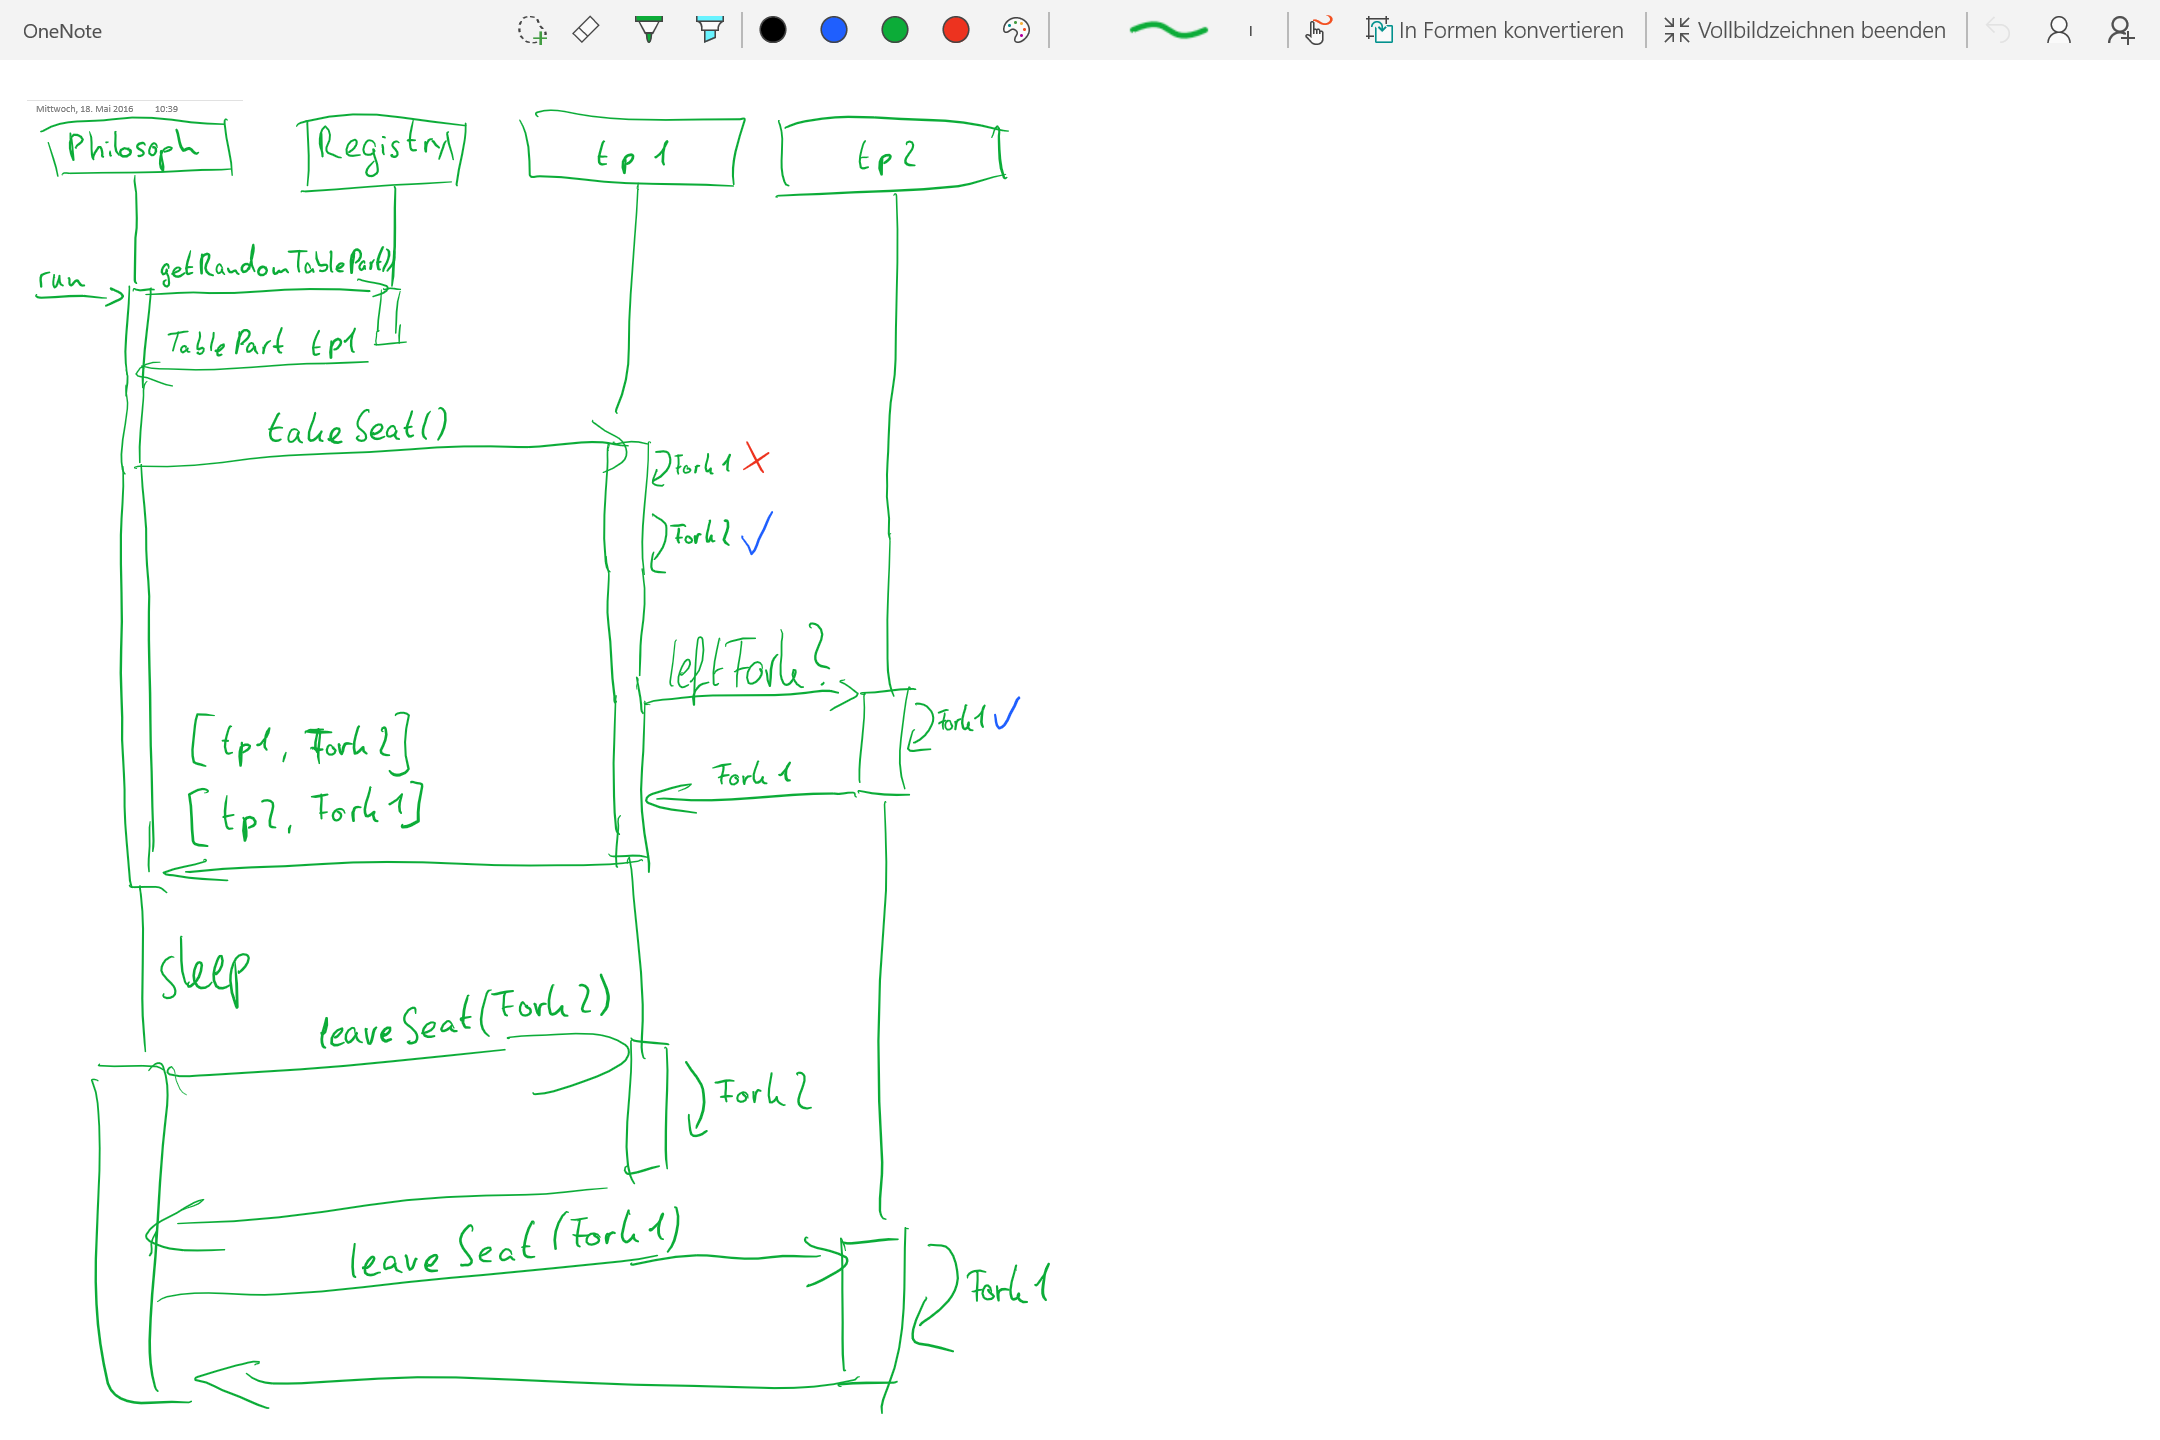 OneNote
In Formen konvertieren
Vollbildzeichnen beenden
Mittwoch, 18. Mai 2016 10:39
Philosoph
Registry
tp1
tp2
run
getRandomTablePart()
TablePart tp1
takeSeat()
Fork1
Fork2
leftFork?
Fork1
Fork1
[tp1, Fork2]
[tp2, Fork1]
sleep
leaveSeat(Fork2)
Fork2
leaveSeat(Fork1)
Fork1